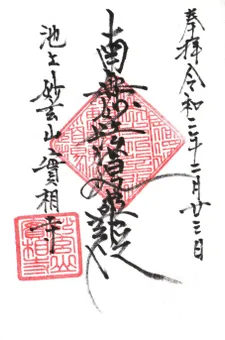 奉拝令和二年二月廿三日
南無妙法蓮華経
池上妙玄山實相寺